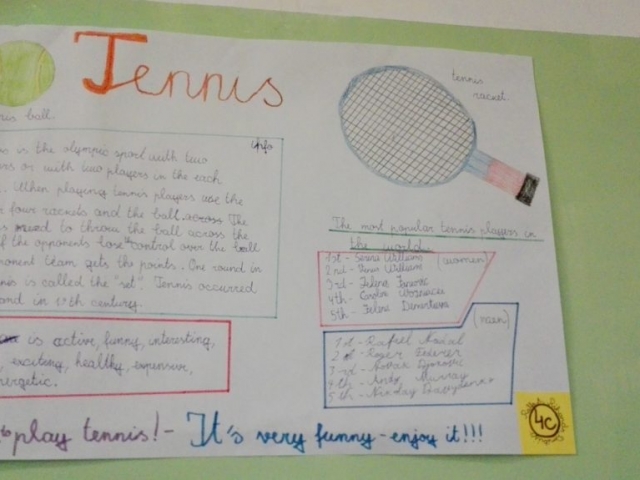 Tennis
tennis
racket
nis ball.
info
is in the olympic sport with two
ers or with two players in the each
. When playing tennis players use the
r four rackets and the ball. The
is to throw the ball across the
f the opponents lose control over the ball
onent team gets the points. One round in
nnis is called the "set". Tennis occurred
and in 17th century.
The most popular tennis players in
the world.
1st - Serena Williams (women)
2nd - Venus Williams
3rd - Jelena
4th -
5th - Elena
(men)
1st - Rafael Nadal
2nd - Roger
3rd - Novak
4th - Andy Murray
5th - Nikolay
is active, funny, interesting,
, exciting, healthy, expensive,
nergetic.
to play tennis! - It's very funny - enjoy it!!!
4c